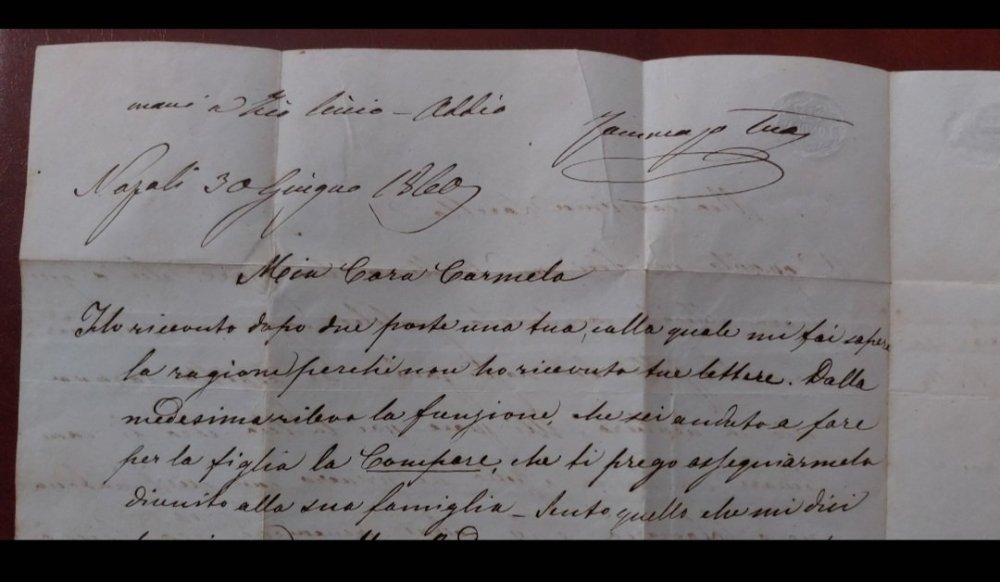 mani a Zio Ciccio – Addio
Tua
Napoli 30 Giugno 1860
Mia Cara Carmela
Ho ricevuto dopo due poste una tua, colla quale mi fai sapere
la ragione perchè non ho ricevuto tue lettere. Dalla
medesima rilevo la funzione, che sei andata a fare
per la figlia la Compare, che ti prego ossequiarmela
diunito alla sua famiglia – Sento quello che mi dici